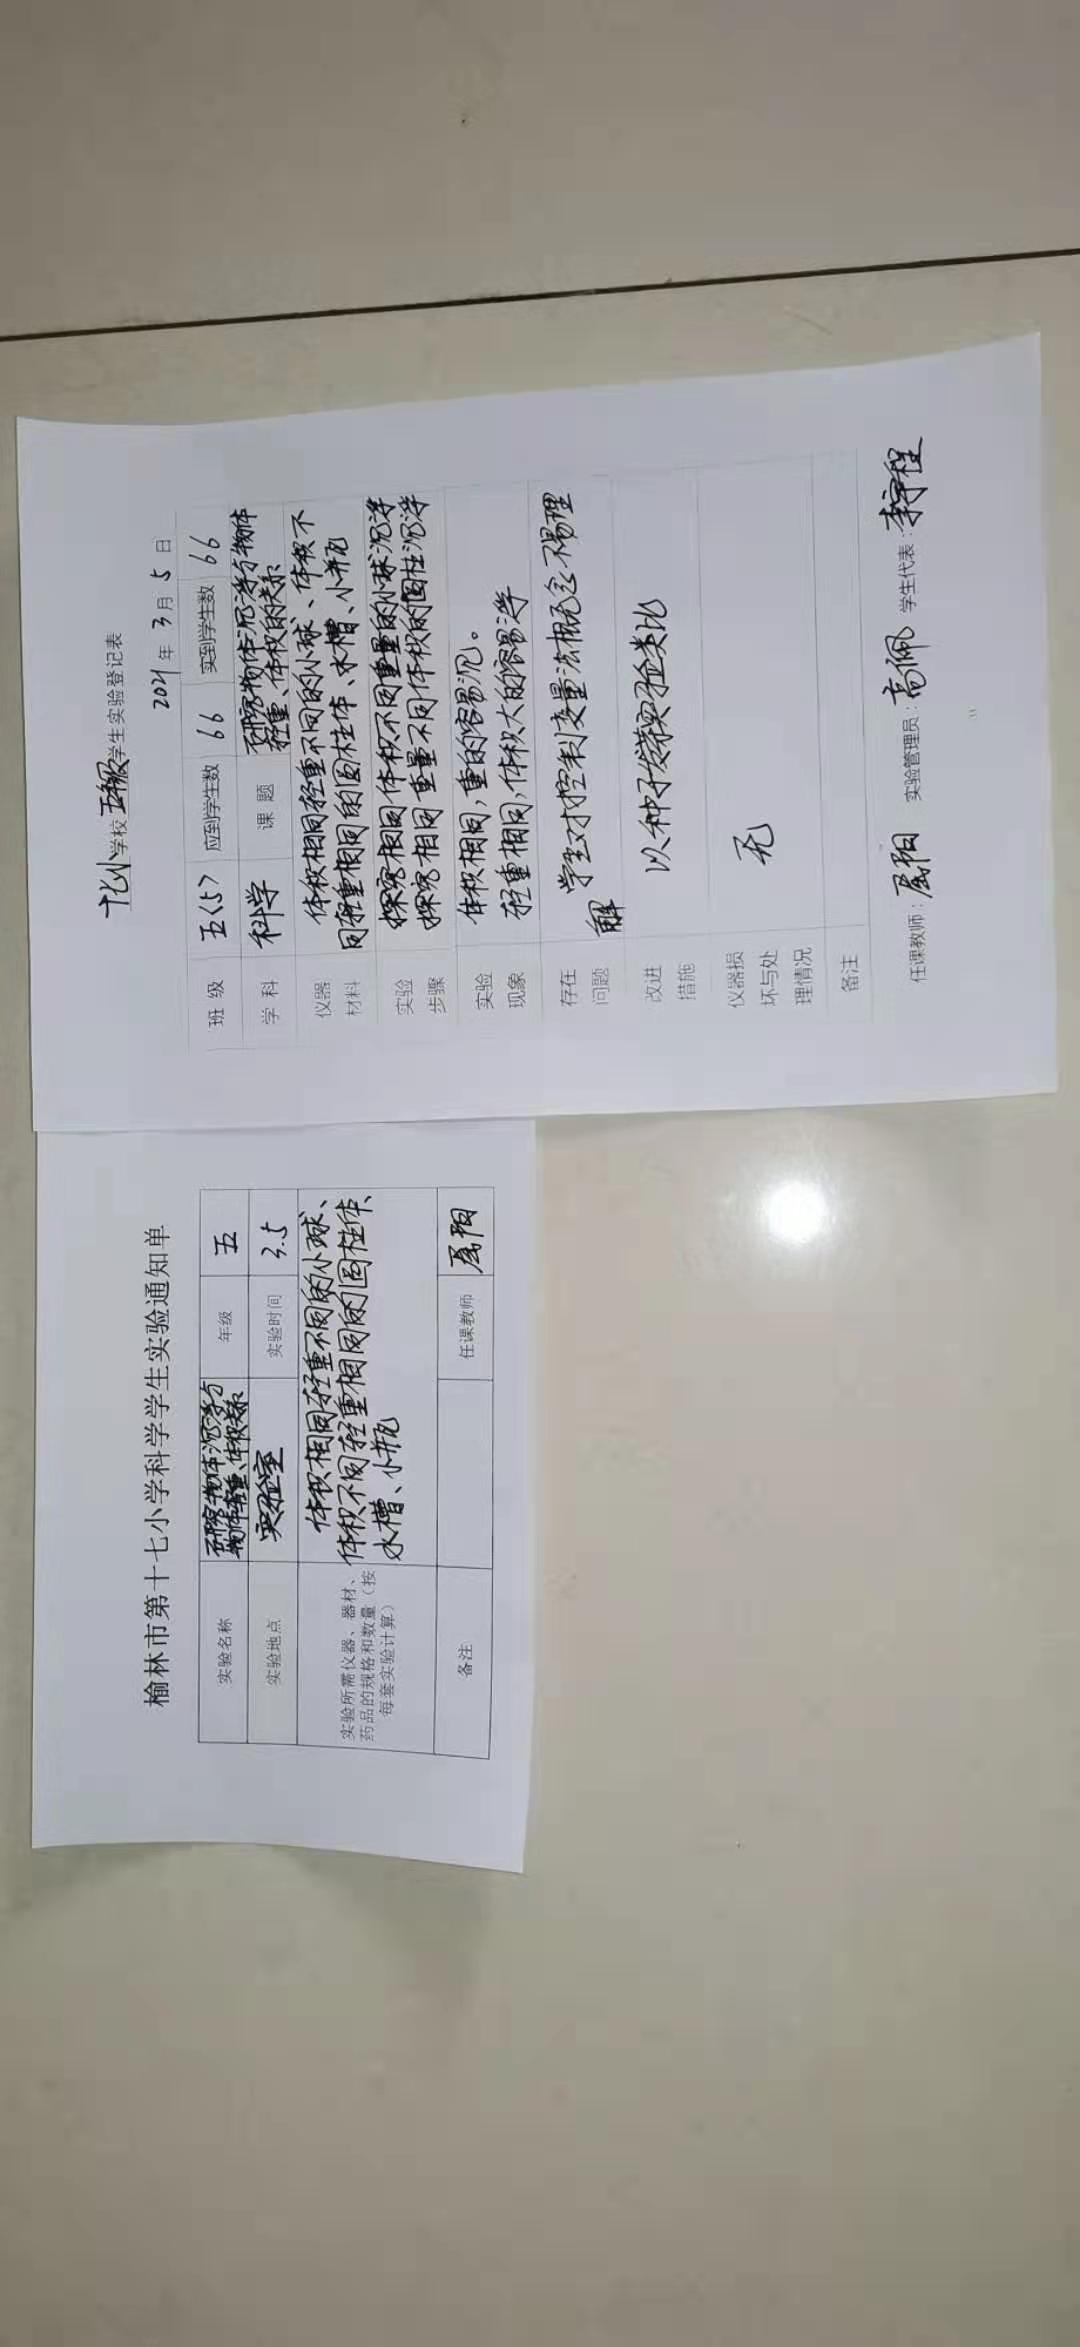 榆林市第十七小学科学学生实验通知单
实验名称 研究物体沉浮与物体轻重、体积关系 年级 五
实验地点 实验室 实验时间 3.5
实验所需仪器、器材、
药品的规格和数量（按
每套实验计算）
体积相同轻重不同的小球、
体积不同轻重相同的圆柱体、
水槽、小瓶
备注 任课教师 屈阳
十七小学校五年级学生实验登记表
2021年3月5日
班级 五<5> 应到学生数 66 实到学生数 66
学科 科学 课题 研究物体沉浮与物体
轻重、体积的关系
仪器
材料
体积相同轻重不同的小球、体积不
同轻重相同的圆柱体、水槽、小瓶
实验
步骤
探究相同体积不同重量的小球沉浮
探究相同重量不同体积的圆柱沉浮
实验
现象
体积相同，重的容易沉。
轻重相同，体积大的容易浮
存在
问题
学生对控制变量法概念不易理
解
改进
措施
以种子发芽实验类比
仪器损
坏与处
理情况
无
备注
任课教师：屈阳 实验管理员：高佩 学生代表：李程